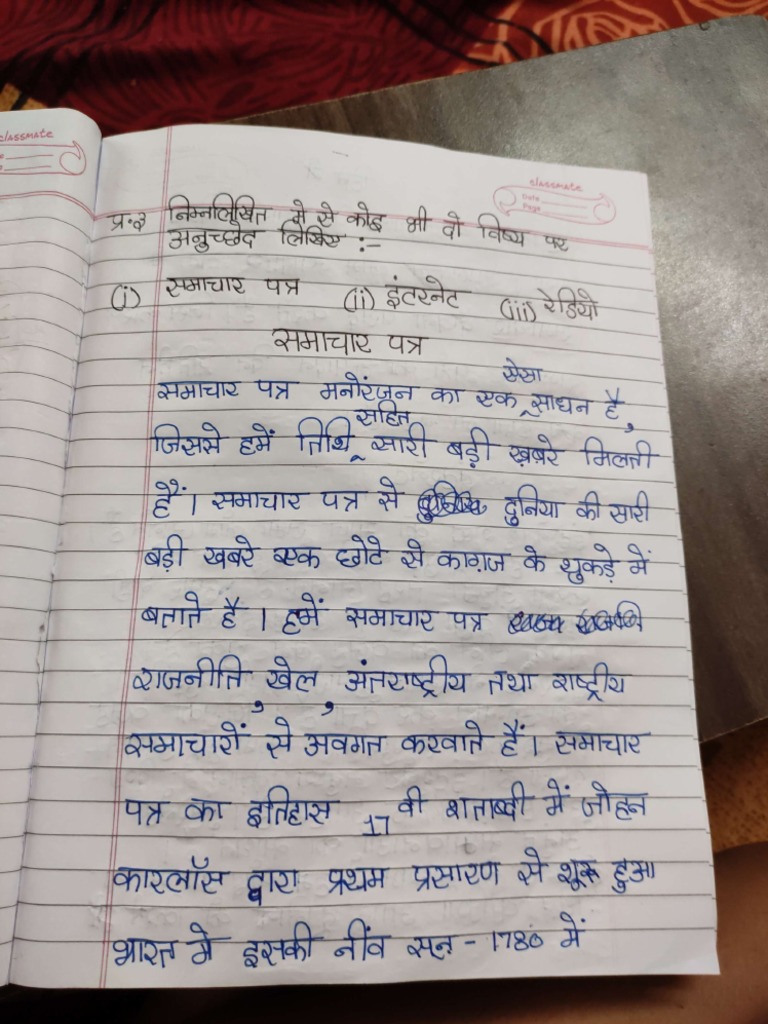 classmate
classmate
Date
Page
प्र.३ निम्नलिखित मे से कोइ भी दो विष्य पर
अनुच्छेद लिखिए :-
(i) समाचार पत्र (ii) इंटरनेट (iii) रेडियो
समाचार पत्र
समाचार पत्र मनोरंजन का एक ऐसा साधन है,
जिससे हमें तिथि सहित सारी बड़ी ख़बरे मिलती
हैं। समाचार पत्र से दुनिया की सारी
बड़ी खबरे एक छोटे से काग़ज के टुकड़े में
बताते है। हमें समाचार पत्र
राजनीति, खेल, अंतराष्ट्रीय तथा राष्ट्रीय
समाचारों से अवगत करवाते हैं। समाचार
पत्र का इतिहास 17 वी शताब्दी में जोहन
कारलॉस द्वारा प्रथम प्रसारण से शुरू हुआ
भारत मे इसकी नींव सन् - 1780 में